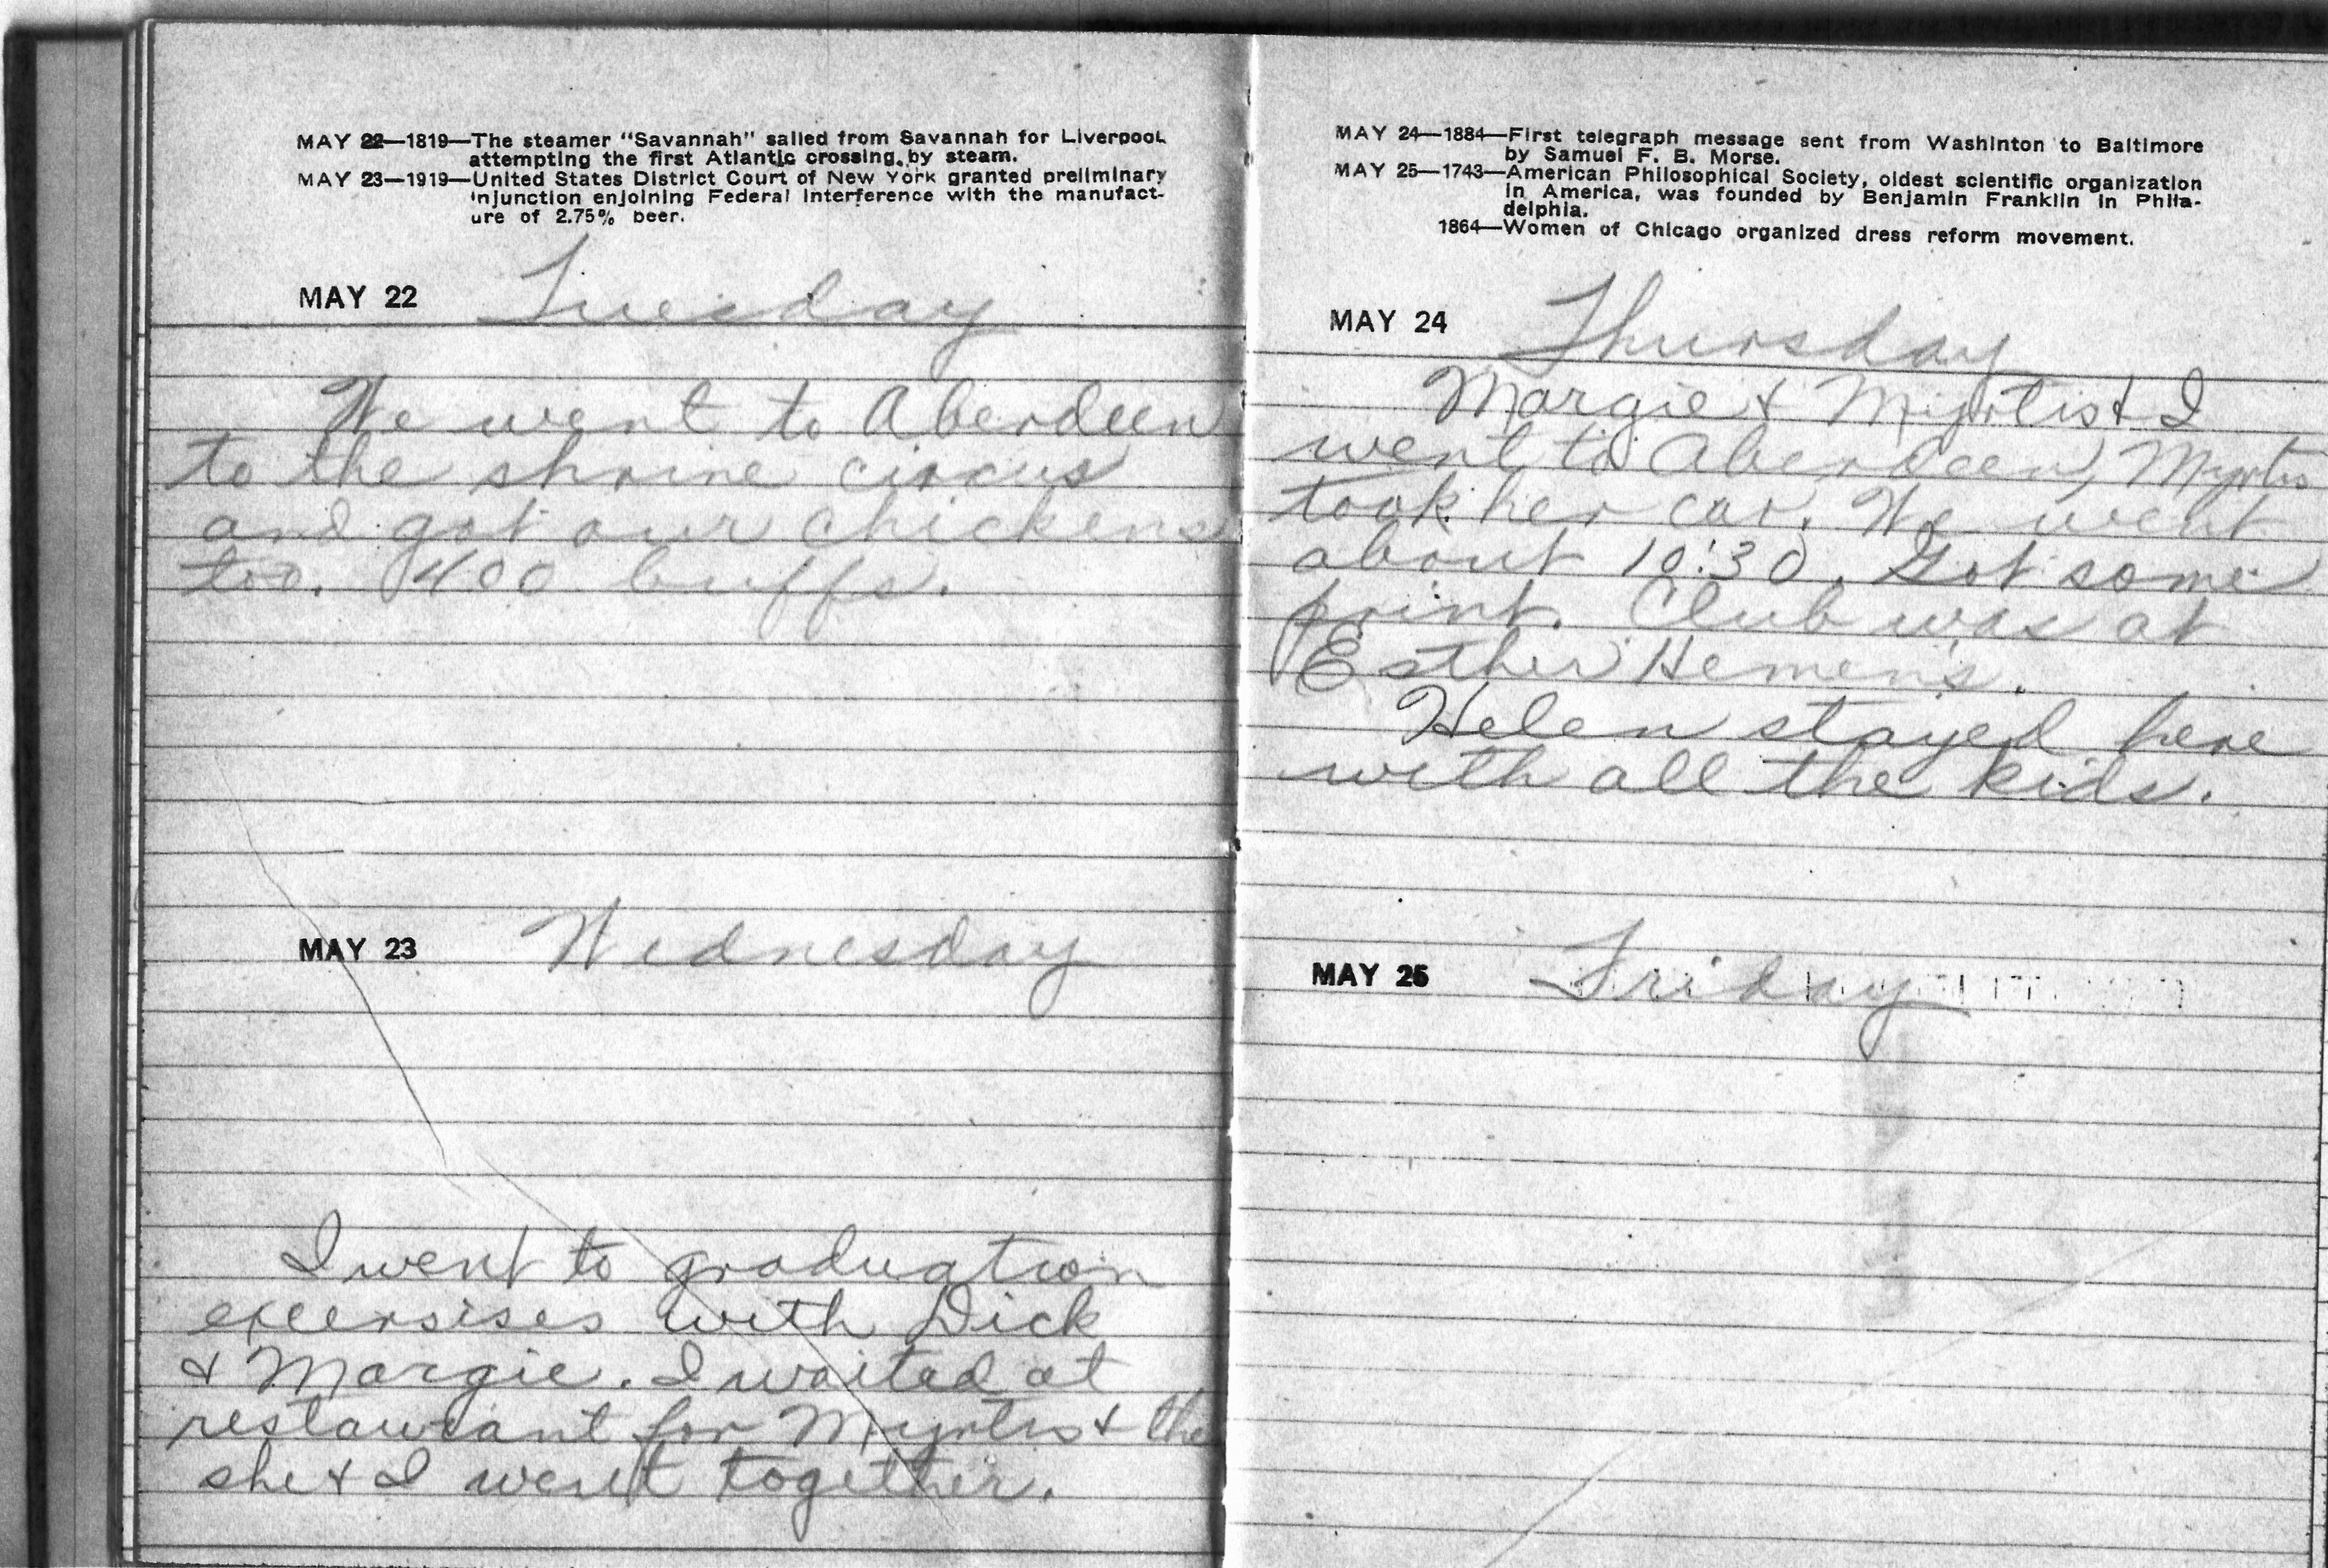 MAY 22—1819—The steamer "Savannah" sailed from Savannah for Liverpool
attempting the first Atlantic crossing by steam.
MAY 23—1919—United States District Court of New York granted preliminary
injunction enjoining Federal interference with the manufact-
ure of 2.75% beer.
MAY 22 Tuesday
We went to Aberdeen
to the shrine circus
and got our chickens
too. 400 buffs.
MAY 23 Wednesday
I went to graduation
excersises with Dick
& Margie. I waited at
restaurant for Myrtis & the
she & I went together.
MAY 24—1884—First telegraph message sent from Washinton to Baltimore
by Samuel F. B. Morse.
MAY 25—1743—American Philosophical Society, oldest scientific organization
in America, was founded by Benjamin Franklin in Phila-
delphia.
1864—Women of Chicago organized dress reform movement.
MAY 24 Thursday
Margie & Myrtis & I
went to Aberdeen, Myrtis
took her car. We went
about 10:30. Got some
print. Club was at
Esther Hemen's.
Helen stayed here
with all the kids.
MAY 25 Friday